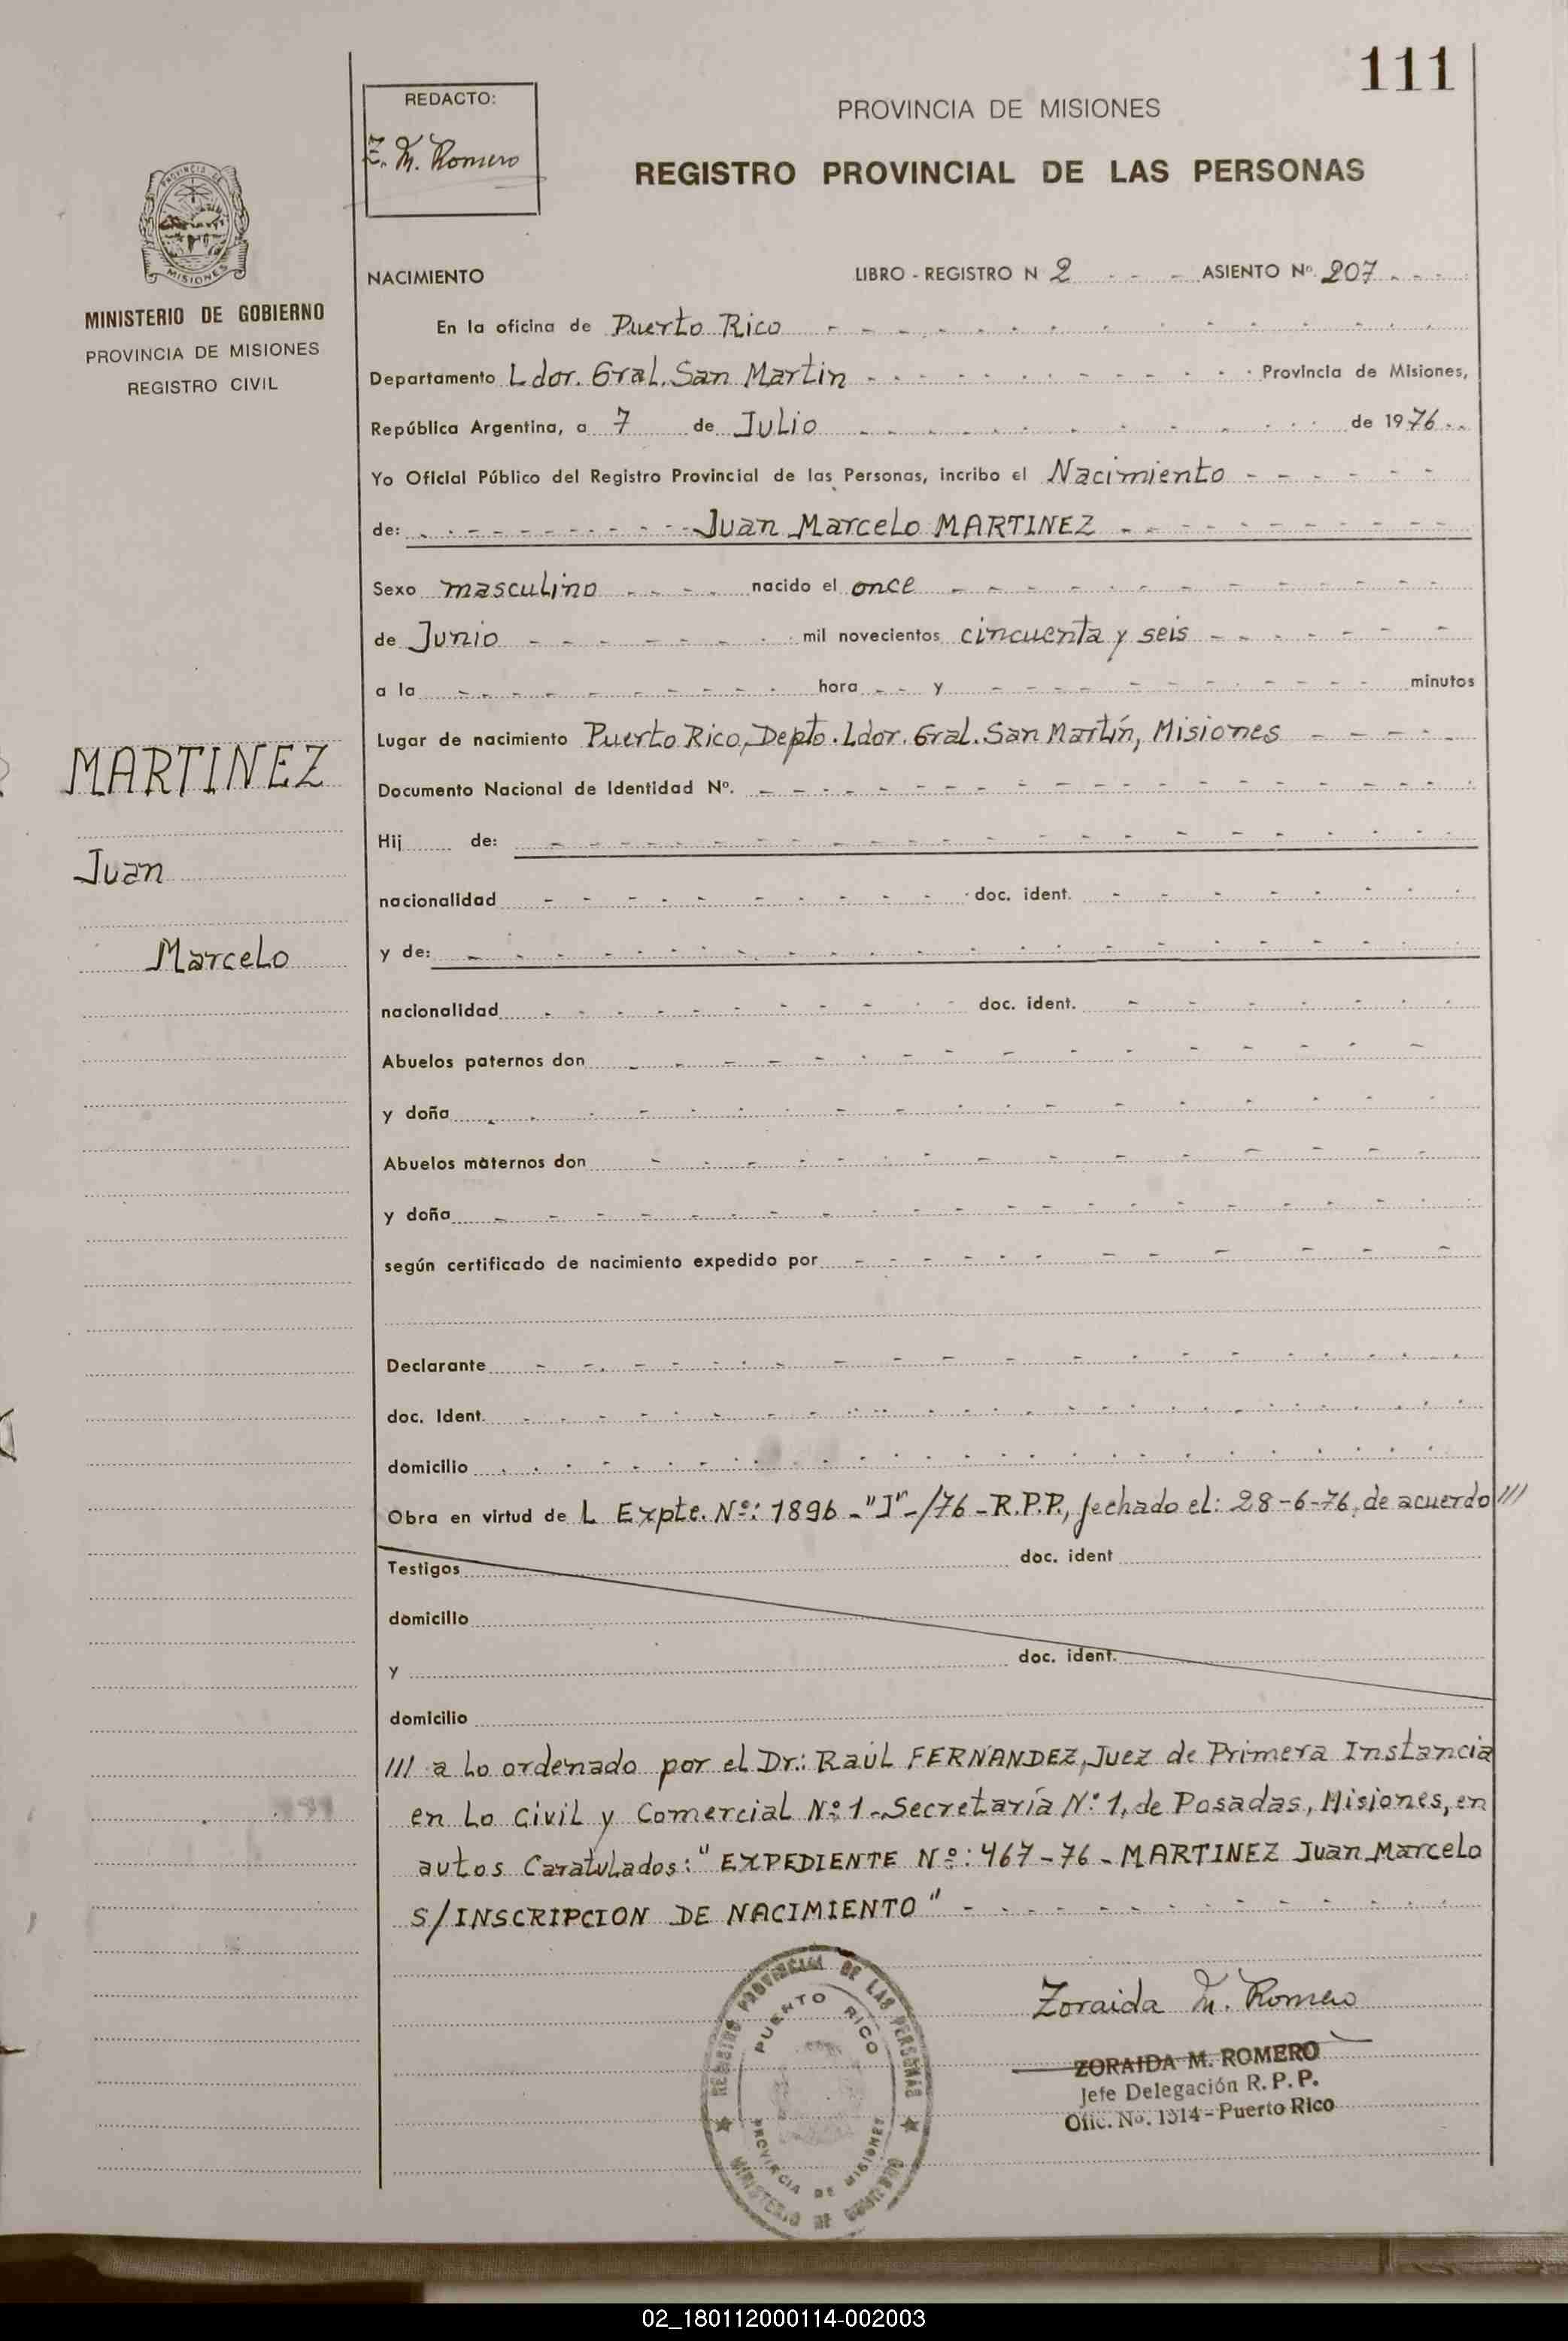 111
REDACTO:
Z. M. Romero
PROVINCIA DE MISIONES
REGISTRO PROVINCIAL DE LAS PERSONAS
PROVINCIA DE
MISIONES
MINISTERIO DE GOBIERNO
PROVINCIA DE MISIONES
REGISTRO CIVIL
NACIMIENTO LIBRO - REGISTRO N 2 ASIENTO Nº 207
En la oficina de Puerto Rico
Departamento Ldor. Gral. San Martin Provincia de Misiones,
República Argentina, a 7 de Julio de 1976
Yo Oficial Público del Registro Provincial de las Personas, incribo el Nacimiento
de: Juan Marcelo MARTINEZ
Sexo masculino nacido el once
de Junio mil novecientos cincuenta y seis
a la hora y minutos
Lugar de nacimiento Puerto Rico, Depto. Ldor. Gral. San Martín, Misiones
MARTINEZ
Juan
Marcelo
Documento Nacional de Identidad Nº.
Hij de:
nacionalidad doc. ident.
y de:
nacionalidad doc. ident.
Abuelos paternos don
y doña
Abuelos maternos don
y doña
según certificado de nacimiento expedido por
Declarante
doc. Ident.
domicilio
Obra en virtud de L Expte. Nº: 1896 - "J" - /76 - R.P.P., fechado el: 28-6-76, de acuerdo ///
Testigos doc. ident
domicilio
y doc. ident.
domicilio
/// a lo ordenado por el Dr.: Raúl FERNANDEZ, Juez de Primera Instancia
en lo Civil y Comercial Nº 1 - Secretaría Nº 1, de Posadas, Misiones, en
autos Caratulados: "EXPEDIENTE Nº: 467-76 - MARTINEZ Juan Marcelo
S/INSCRIPCION DE NACIMIENTO"
REGISTRO PROVINCIAL DE LAS PERSONAS
PUERTO RICO
PROVINCIA DE MISIONES
MINISTERIO DE GOBIERNO
Zoraida M. Romero
ZORAIDA M. ROMERO
Jefe Delegación R. P. P.
Ofic. No. 1314 - Puerto Rico
02_180112000114-002003